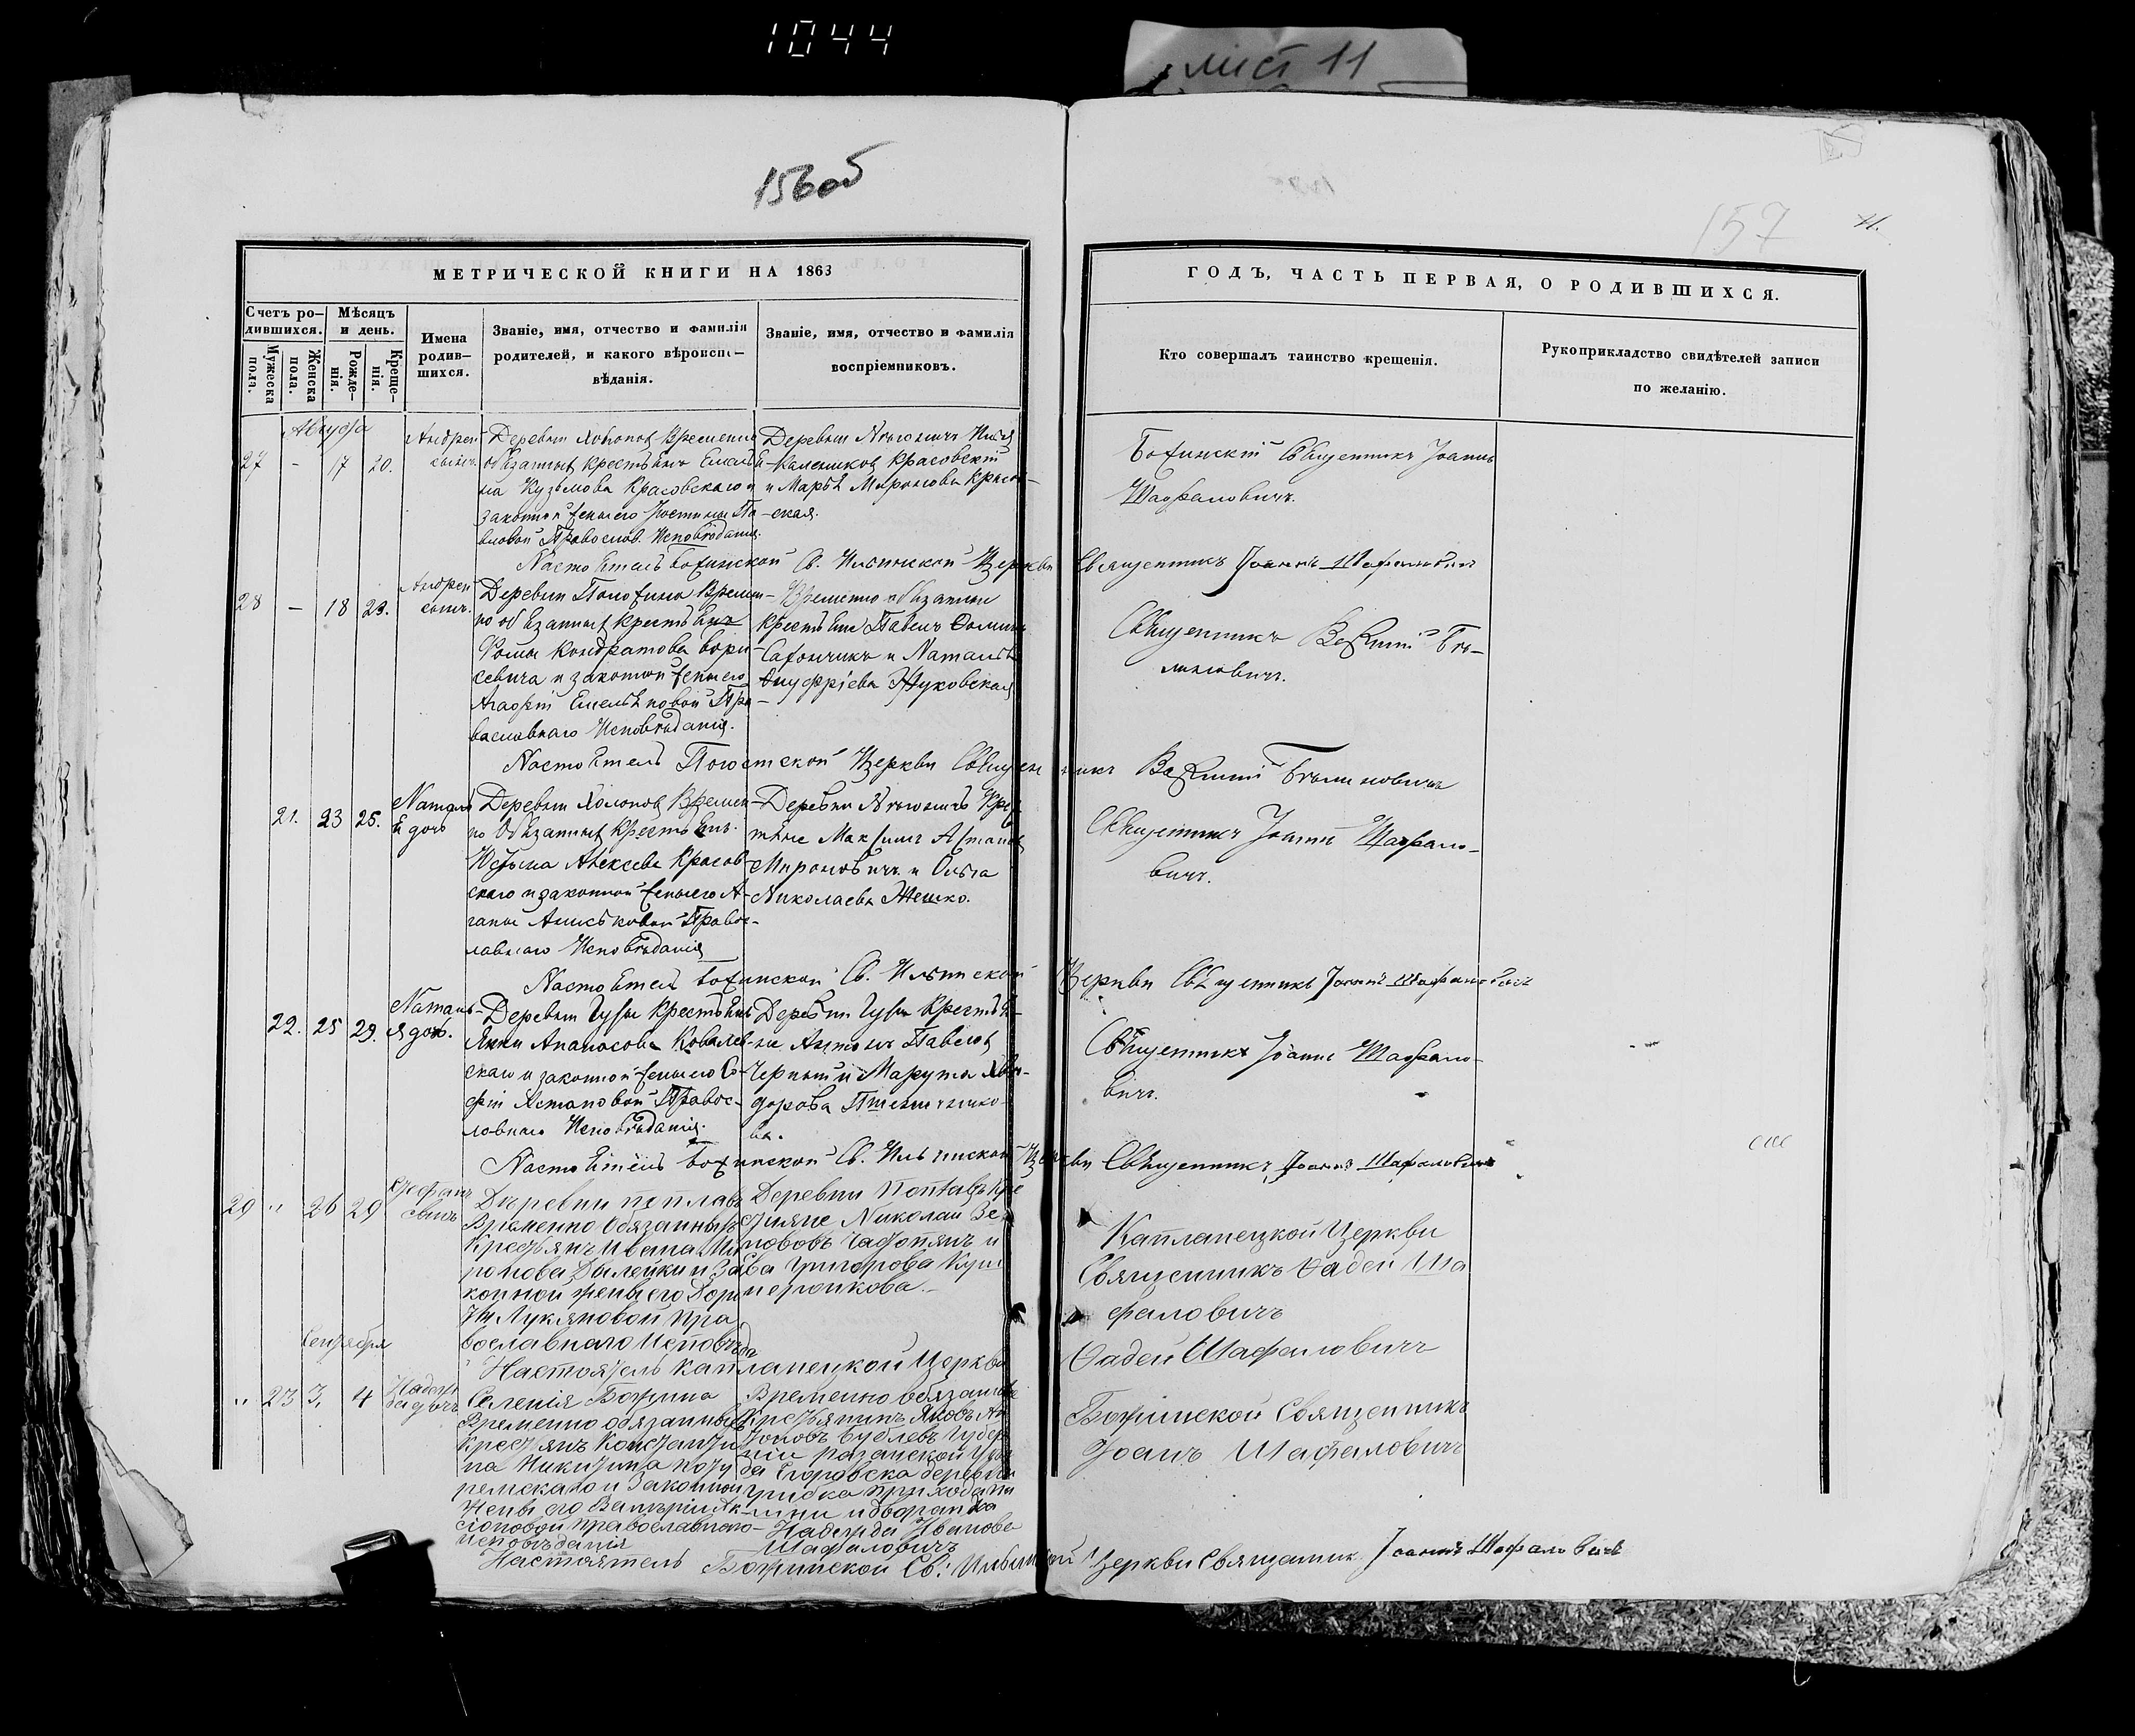 1044
лист 11
156об
157
11.
МЕТРИЧЕСКОЙ КНИГИ НА 1863
ГОДЪ, ЧАСТЬ ПЕРВАЯ, О РОДИВШИХСЯ.
Счетъ ро-
дившихся.
Мужеска
пола.
Женска
пола.
Мѣсяцъ
и день.
Рожде-
нія.
Креще-
нія.
Имена
родив-
шихся.
Званіе, имя, отчество и фамилія
родителей, и какого вѣроиспо-
вѣданія.
Званіе, имя, отчество и фамилія
воспріемниковъ.
Кто совершалъ таинство крещенія.
Рукоприкладство свидѣтелей записи
по желанію.
Августа
27 - 17 20.
Андрей
сынъ.
Деревни Временно
обязанныхъ крестьянъ Емелья
на Кузьмова Красовскаго и
законной жены его Іустины Па
вловой Православ. Исповѣданія.
Деревни
Красовскій
и Марья Миронова Красов-
ская.
Божинскій Священникъ Іоаннъ
Шафаловичъ.
Настоятель Божинской Св. Ильинской Церкви Священникъ Іоаннъ Шафаловичъ
28 - 18 23.
Андрей
сынъ.
Деревни Времен-
но обязанныхъ крестьянъ
Ѳомы Кондратова Бори-
севича и законной жены его
Агафіи Емельяновой Пра-
вославнаго Исповѣданія.
Временно обязанные
крестьяне Павелъ Ѳоминъ
Сахончикъ и Наталья
Онуфріева Жуковская
Священникъ Василій Бы-
линовичъ.
Настоятель Погостской Церкви Священникъ Василій Былиновичъ
21. 23 25.
Наталь
я дочь
Деревни Холоповъ Времен-
но Обязанныхъ Крестьянъ
Устина Алексѣева Красов-
скаго и законной жены его А-
гапы Правос-
лавнаго Исповѣданія
Деревни Крес
тьяне Максимъ Астаповъ
Мироновичъ и Ольга
Николаева Жешко.
Священникъ Іоаннъ Шафало-
вичъ.
Настоятель Божинской Св. Ильинской Церкви Священникъ Іоаннъ Шафаловичъ
22. 25 29.
Наталь-
я дочь.
Деревни Гусы Крестьянъ
Янки Апанасова Ковалев-
скаго и законной жены его Со-
фіи Астаповой Правос-
лавнаго Исповѣданія.
Деревни Гусы Крестья-
не Антонъ Павловъ
Черный и Марута
дорова
ва.
Священникъ Іоаннъ Шафало-
вичъ.
Настоятель Божинской Св. Ильинской Церкви Священникъ Іоаннъ Шафаловичъ
29 " 26 29
сынъ
Деревни Поплавъ
Временно Обязанныхъ
Крестьянъ Ивана Ми
ронова и За
конной жены его
Лукяновой Пра
вославнаго Исповѣда
Деревни Поплавъ Кре
стьяне Николай Зе
новъ и
Ева Григорова Куш
нерчикова.
Капланецкой Церкви
Священникъ Фадей Ша
фаловичъ
Настоятель Капланецкой Церкви
Фадей Шафаловичъ
Сентября
" 23 3. 4
Надеж
да дочь
Селенія Божина
Временно обязанныхъ
Крестьянъ Константи
на Никитина
и Законной
жены его Валеріи
православнаго
исповѣданія
Временно обязанные
Крестьянинъ Яковъ
Губер
ніи Рязанской Уѣз
да Егоровска деревни
и дворянка
Надежда Иванова
Шафаловичъ
Божинской Священникъ
Іоанъ Шафаловичъ
Настоятель Божинской Св: Ильинской Церкви Священникъ Іоаннъ Шафаловичъ